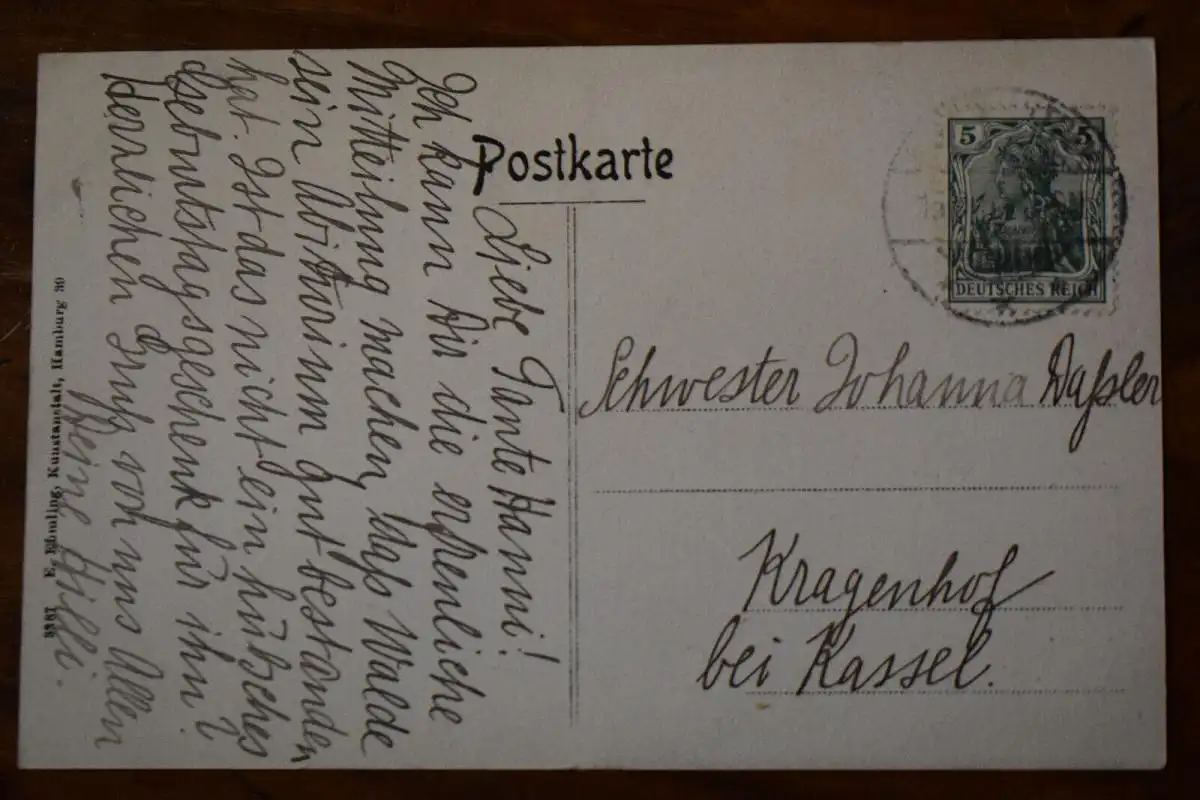 Postkarte
Liebe Tante Hanni!
Ich kann Dir die erfreuliche
Mitteilung machen, daß Walde
sein Abiturium gut bestanden
hat. Ist das nicht ein hübsches
Geburtstagsgeschenk für ihn?
Herrlichen Gruß von uns Allen
Deine Hilli.
5 5
DEUTSCHES REICH
Schwester Johanna Daßler
Kragenhof
bei Kassel.
E. Ebmling, Kunstanstalt, Hamburg 39